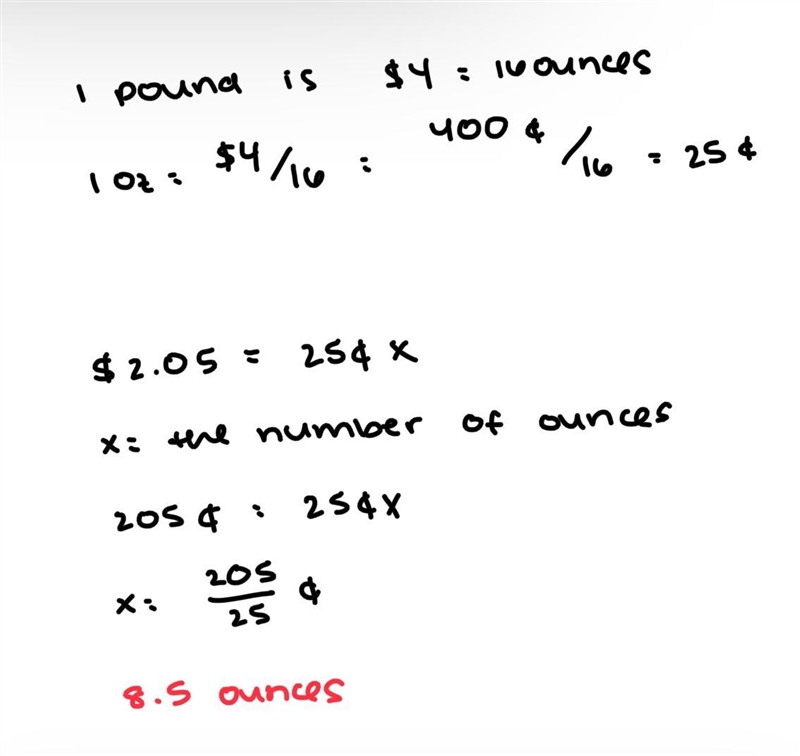 1 pound is $4 = 16 ounces
1 oz = $4/16 = 400 ¢/16 = 25 ¢
$2.05 = 25¢ x
x = the number of ounces
205 ¢ = 25¢x
x = 205/25 ¢
8.5 ounces